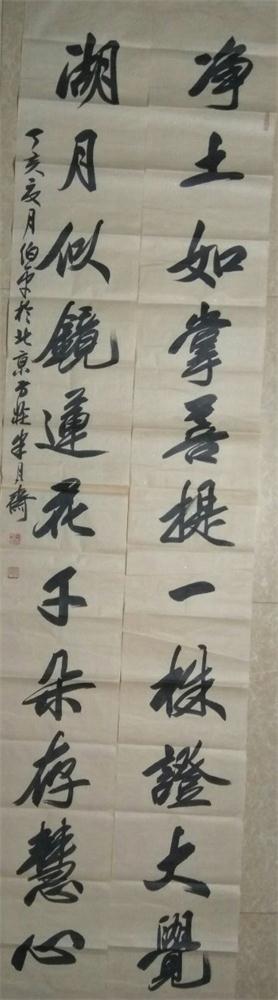 净土如掌菩提一株證大覺
湖月似鏡蓮花千朵存慧心
丁亥夏月伯平於北京方莊半月齋